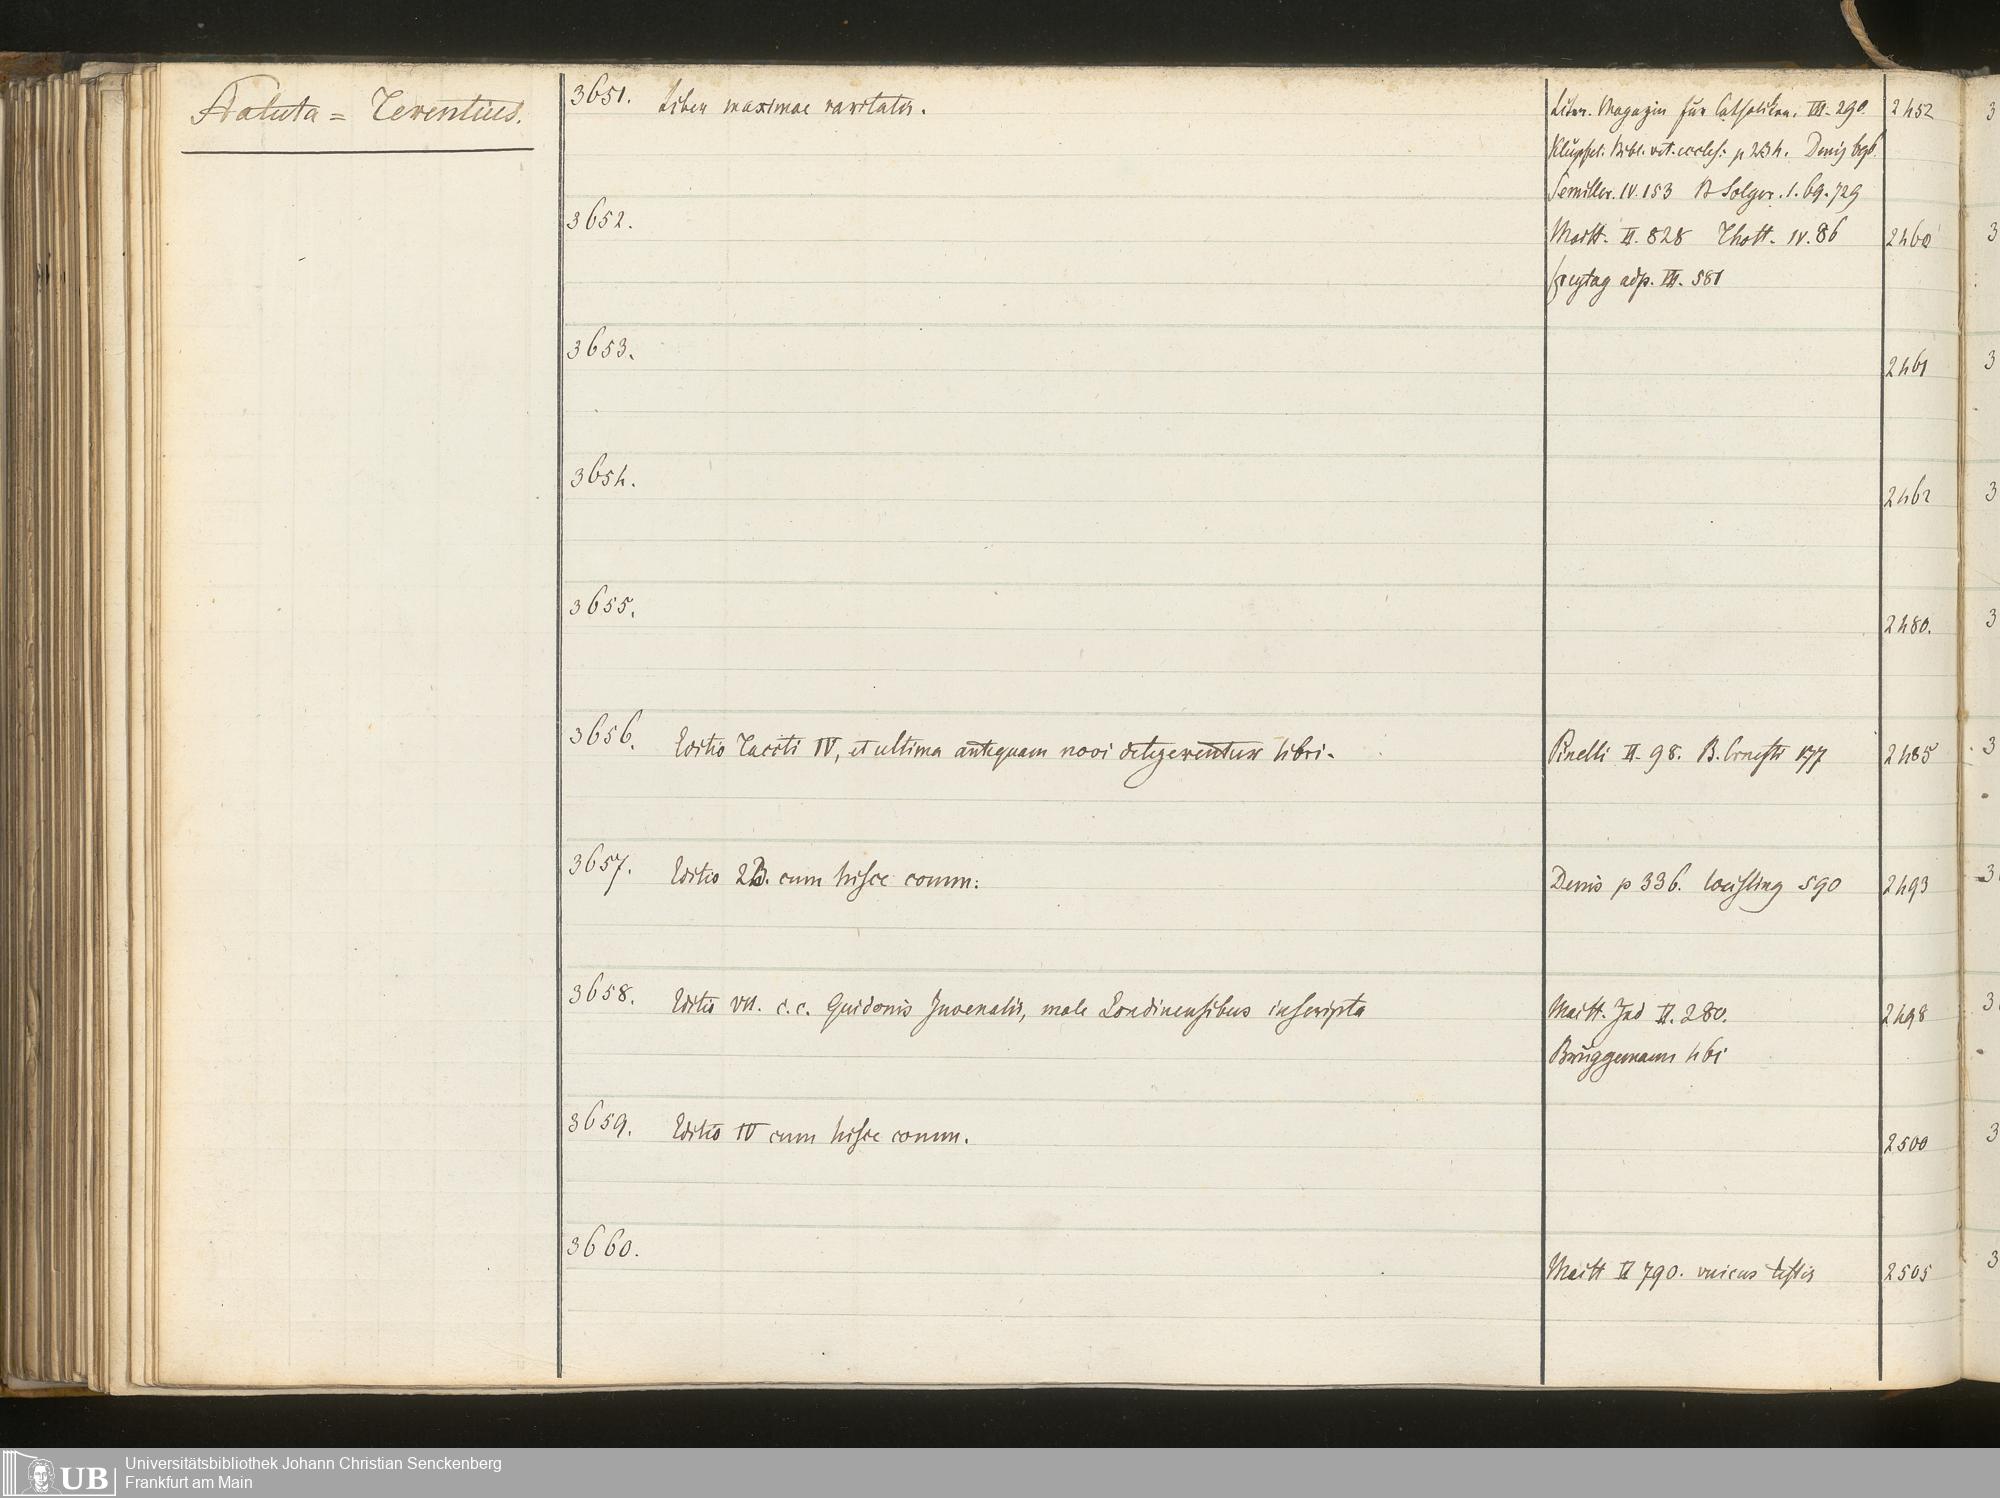 Statuta = Terentius.
3651. Liber maximae raritatis. Liter. Magazin für Catholiken. III. 290. 2452
Klüpfel. Bibl. vet. eccles: p 234. Denis 696.
Semiller. IV. 153 B Solger. 1. 69. 729
3652. Maitt. II. 828 Thott. IV. 86 2460
Freytag adp. III. 581
3653. 2461
3654. 2462
3655. 2480.
3656. Editio Taciti IV, et ultima antequam novi detegerentur libri. Pinelli II. 98. B. Ernesti 177 2485
3657. Editio 2 cum hisce comm: Denis p 336. Weisling 590 2493
3658. Editio VII. c. c. Guidonis Juvenalis, male Londinensibus inscripta Maitt. Ind II. 280. 2498
Brüggemann 461
3659. Editio IV cum hisce comm. 2500
3660. Maitt II 790. unicus testis 2505
UB Universitätsbibliothek Johann Christian Senckenberg
Frankfurt am Main